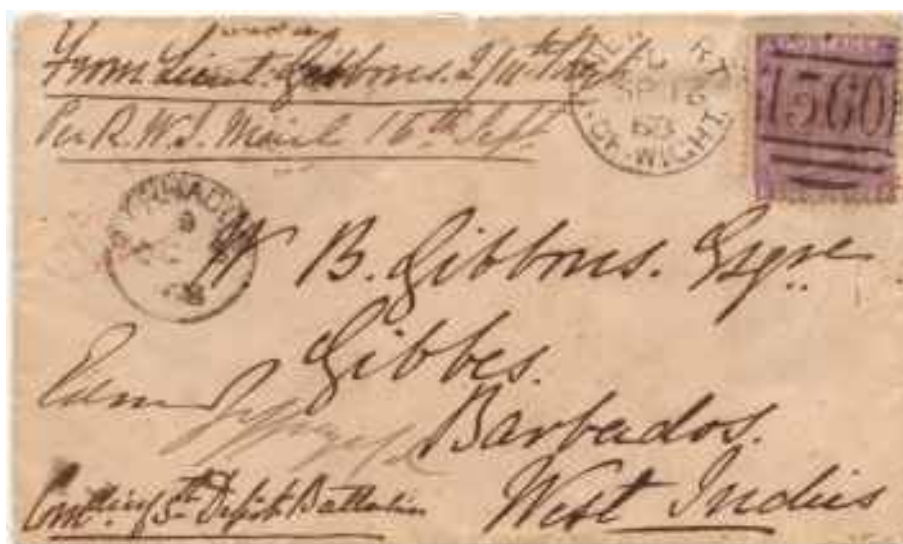 From Lieut. Gibbons. 2/11th Regt
Per R.W.I. Mail 16th Sept
OF. WIGHT.
SP 16
63
1560
W B. Gibbons. Esqre
Gibbes.
Barbados.
West Indies
Comdling 5th Depôt Battalion